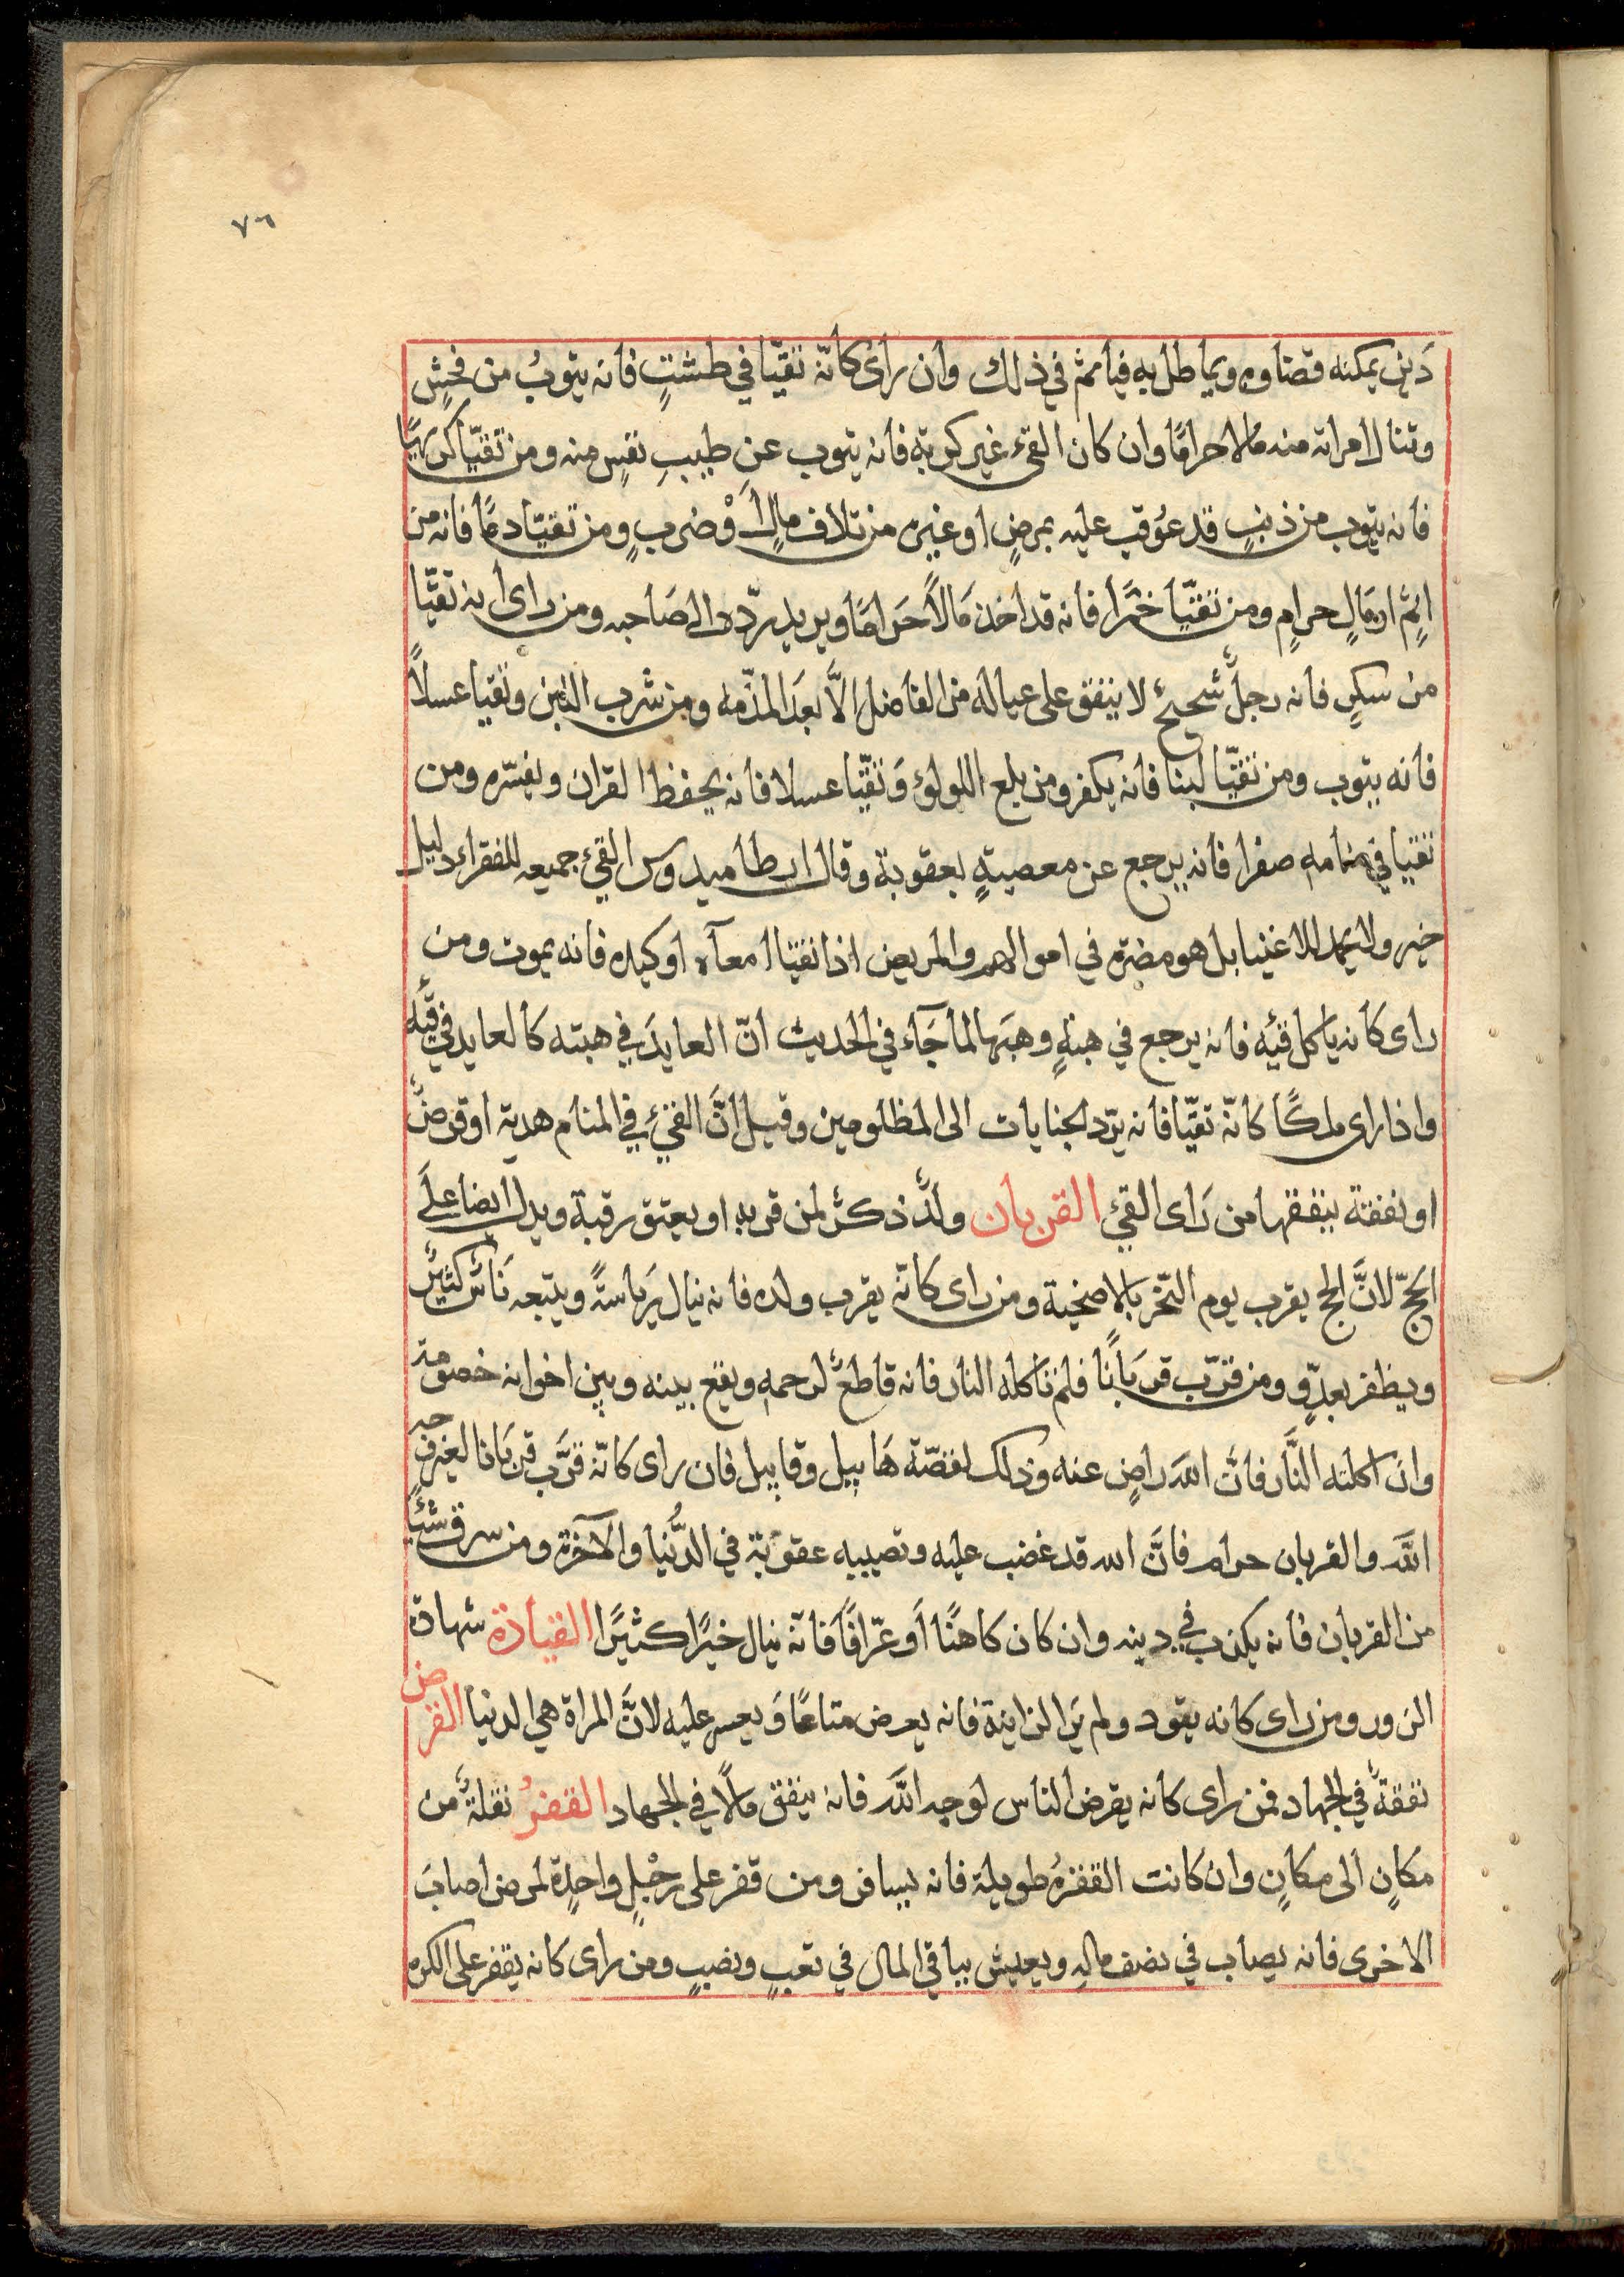 ٧٦
دَين يمكنه قضاوه ويماطل به فياثم في ذلك وان راى كانّه تقيّا في طشتٍ فانه يتوبُ من فحشٍ
وتنال امراته منه مالا حرامًا وان كان القيء غير كريه فانه يتوب عن طيبِ نفسٍ منه ومن تقيّا كريهًا
فانه يتوب من ذنبٍ قد عوُقب عليه بمرضٍ او غيره من تلاف مالٍ اَوْ ضربٍ ومن تقيّا دمًا فانه من
اثمٍ او مَالٍ حرامٍ ومن تقيّا خمرًا فانه قد اخذ مَالاً حَرامًا ويريد ردّه الى صَاحبه ومن راى انه تقيّا
من سكرٍ فانه رجلٌ شحيحٌ لا ينفق على عياله من الفاضل الاَّ بعدَ المذمّه ومن شرب اللبن وتقيا عسلاً
فانه يتوب ومن تقيّا لبنا فانه يكفر ومن بلع اللولوَ وَتقيّا عسلا فانه يحفظ القران ويفسّره ومن
تقيا في منامه صفرا فانه يرجع عن معصيةٍ بعقوبة وقال ارطاميدوس القيء جميعه للفقراء دليل
خير ولا يحمد للاغنيا بل هو مضرة في اموالهم والمريض اذا تقيّا امعآه او كبده فانه يموت ومن
راى كَانه ياكل قيَه فانه يرجع في هبةٍ وهبَها لما جَآء في الحديث انّ العايدَ في هبته كالعايد في قيَه
واذا راى ملكًا كانّه تقيّا فانه يرّد الجنايات الى المظلومين وقيل انَّ القيءَ في المنام هدية او قرضٌ
او نفقة ينفقها من رَاى القيءَ القربان ولدٌ ذكرٌ لمن قربه او يعتق رقبة ويدل ايضا علَى
الحَجّ لانَّ الحج يقرب يوم النّحر بالاضحية ومن راى كانّه يقرب ولده فانه ينال رَياسَةً ويتبعه نَاسٌ كثيرٌ
ويظفر بعدوٍّ ومن قرّب قربَانًا فلم تاكله النار فانه قاطعٌ لرحمه ويقع بينه وبين اخوانه خصومة
وان اكلته النَّار فانَّ اللهَ راضٍ عنه وذلك لقصّة هَابيل وقابيل فان راى كانّه قرَّب قربَانا لغير وجهِ
اللَّه والقربان حرام فانَّ الله قد غضب عليه وتصيبه عقوبَة في الدُّنيا والآخرة ومن سرق شَيًا
من القربان فانه يكذب في دينه وان كان كاهنًا اَو عرّافًا فانّه ينال خيرًا كثيرًا القيادة شهادة
الزور ومن راى كانه يقود ولم يَر الزانية فانه يعرض متاعًا وَيعسر عليه لانَّ المراة هي الدنيا القرض
نفقةٌ في الجهاد فمن راى كانه يقرض الناس لوجه اللَّه فانه ينفق مالاً في الجهاد القفزُ نقلةٌ من
مكانٍ الى مكانٍ وان كانت القفزةُ طويلة فانه يسافر ومن قفز على رجْلٍ واحدة لمرض اصابَ
الاخرى فانه يصاب في نصف مالِه ويعيش بباقي المال في تعبٍ ونصبٍ ومن راى كانه يقفز على الكره